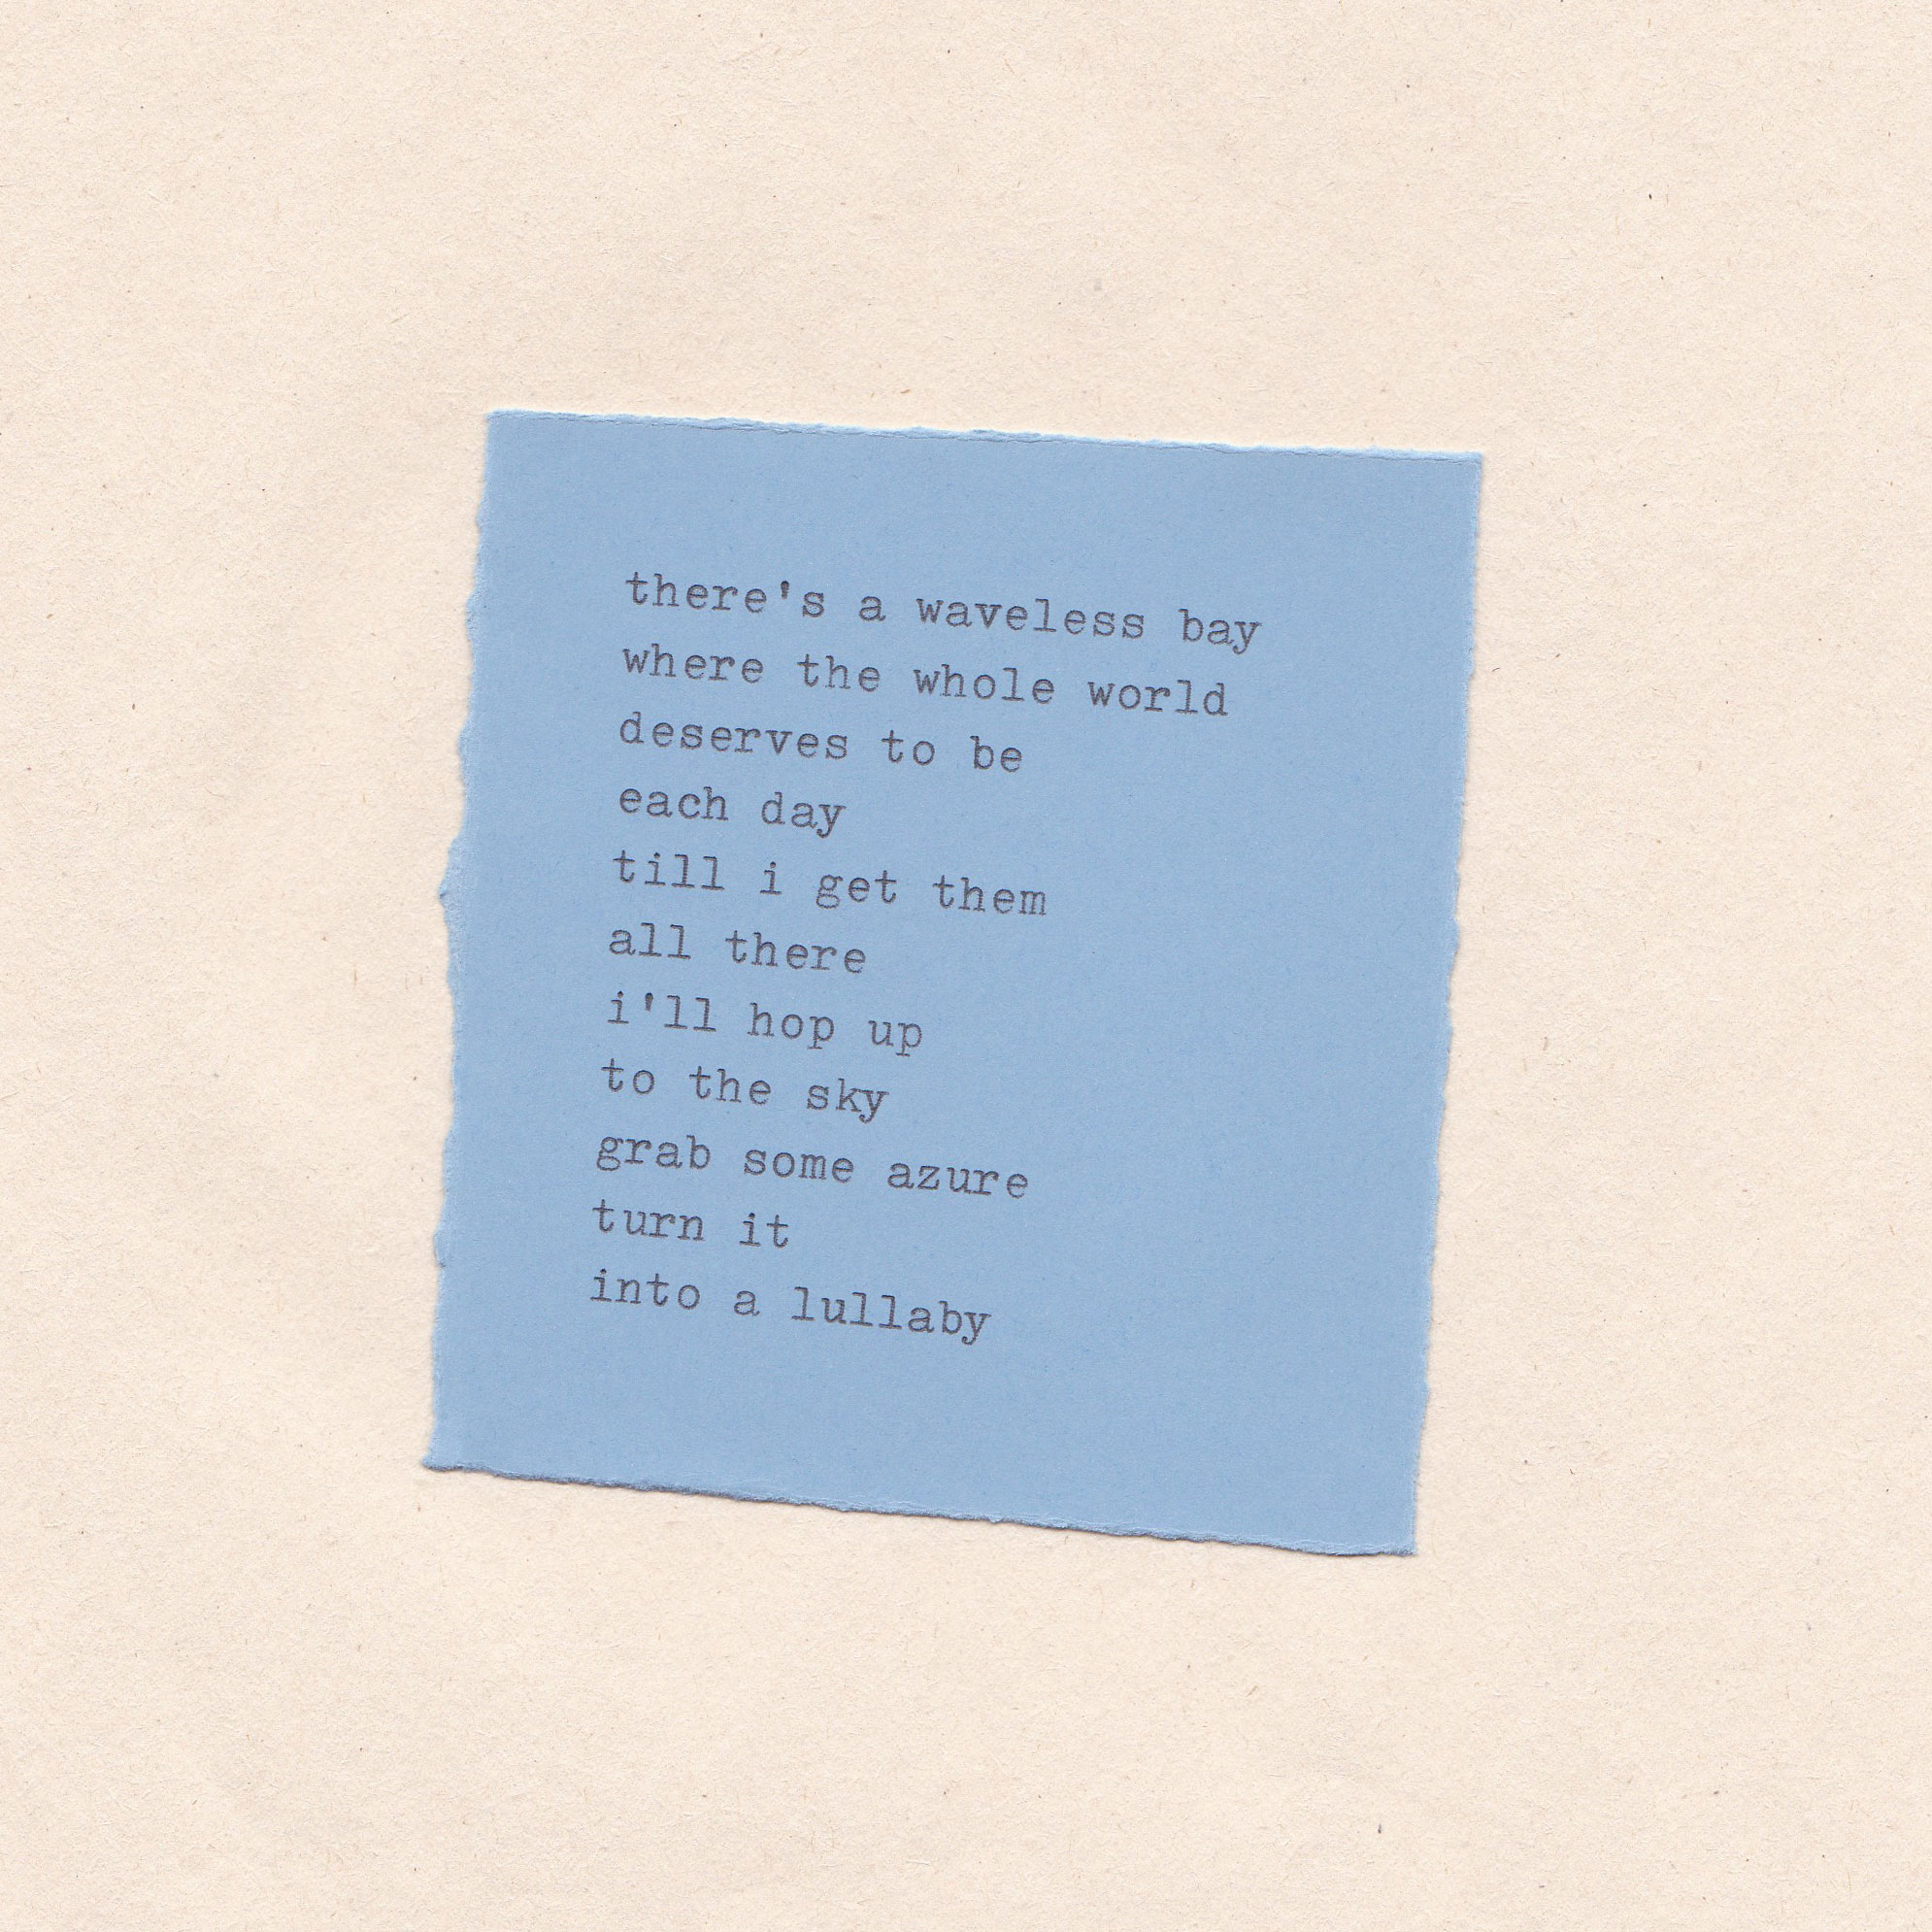 there's a waveless bay
where the whole world
deserves to be
each day
till i get them
all there
i'll hop up
to the sky
grab some azure
turn it
into a lullaby